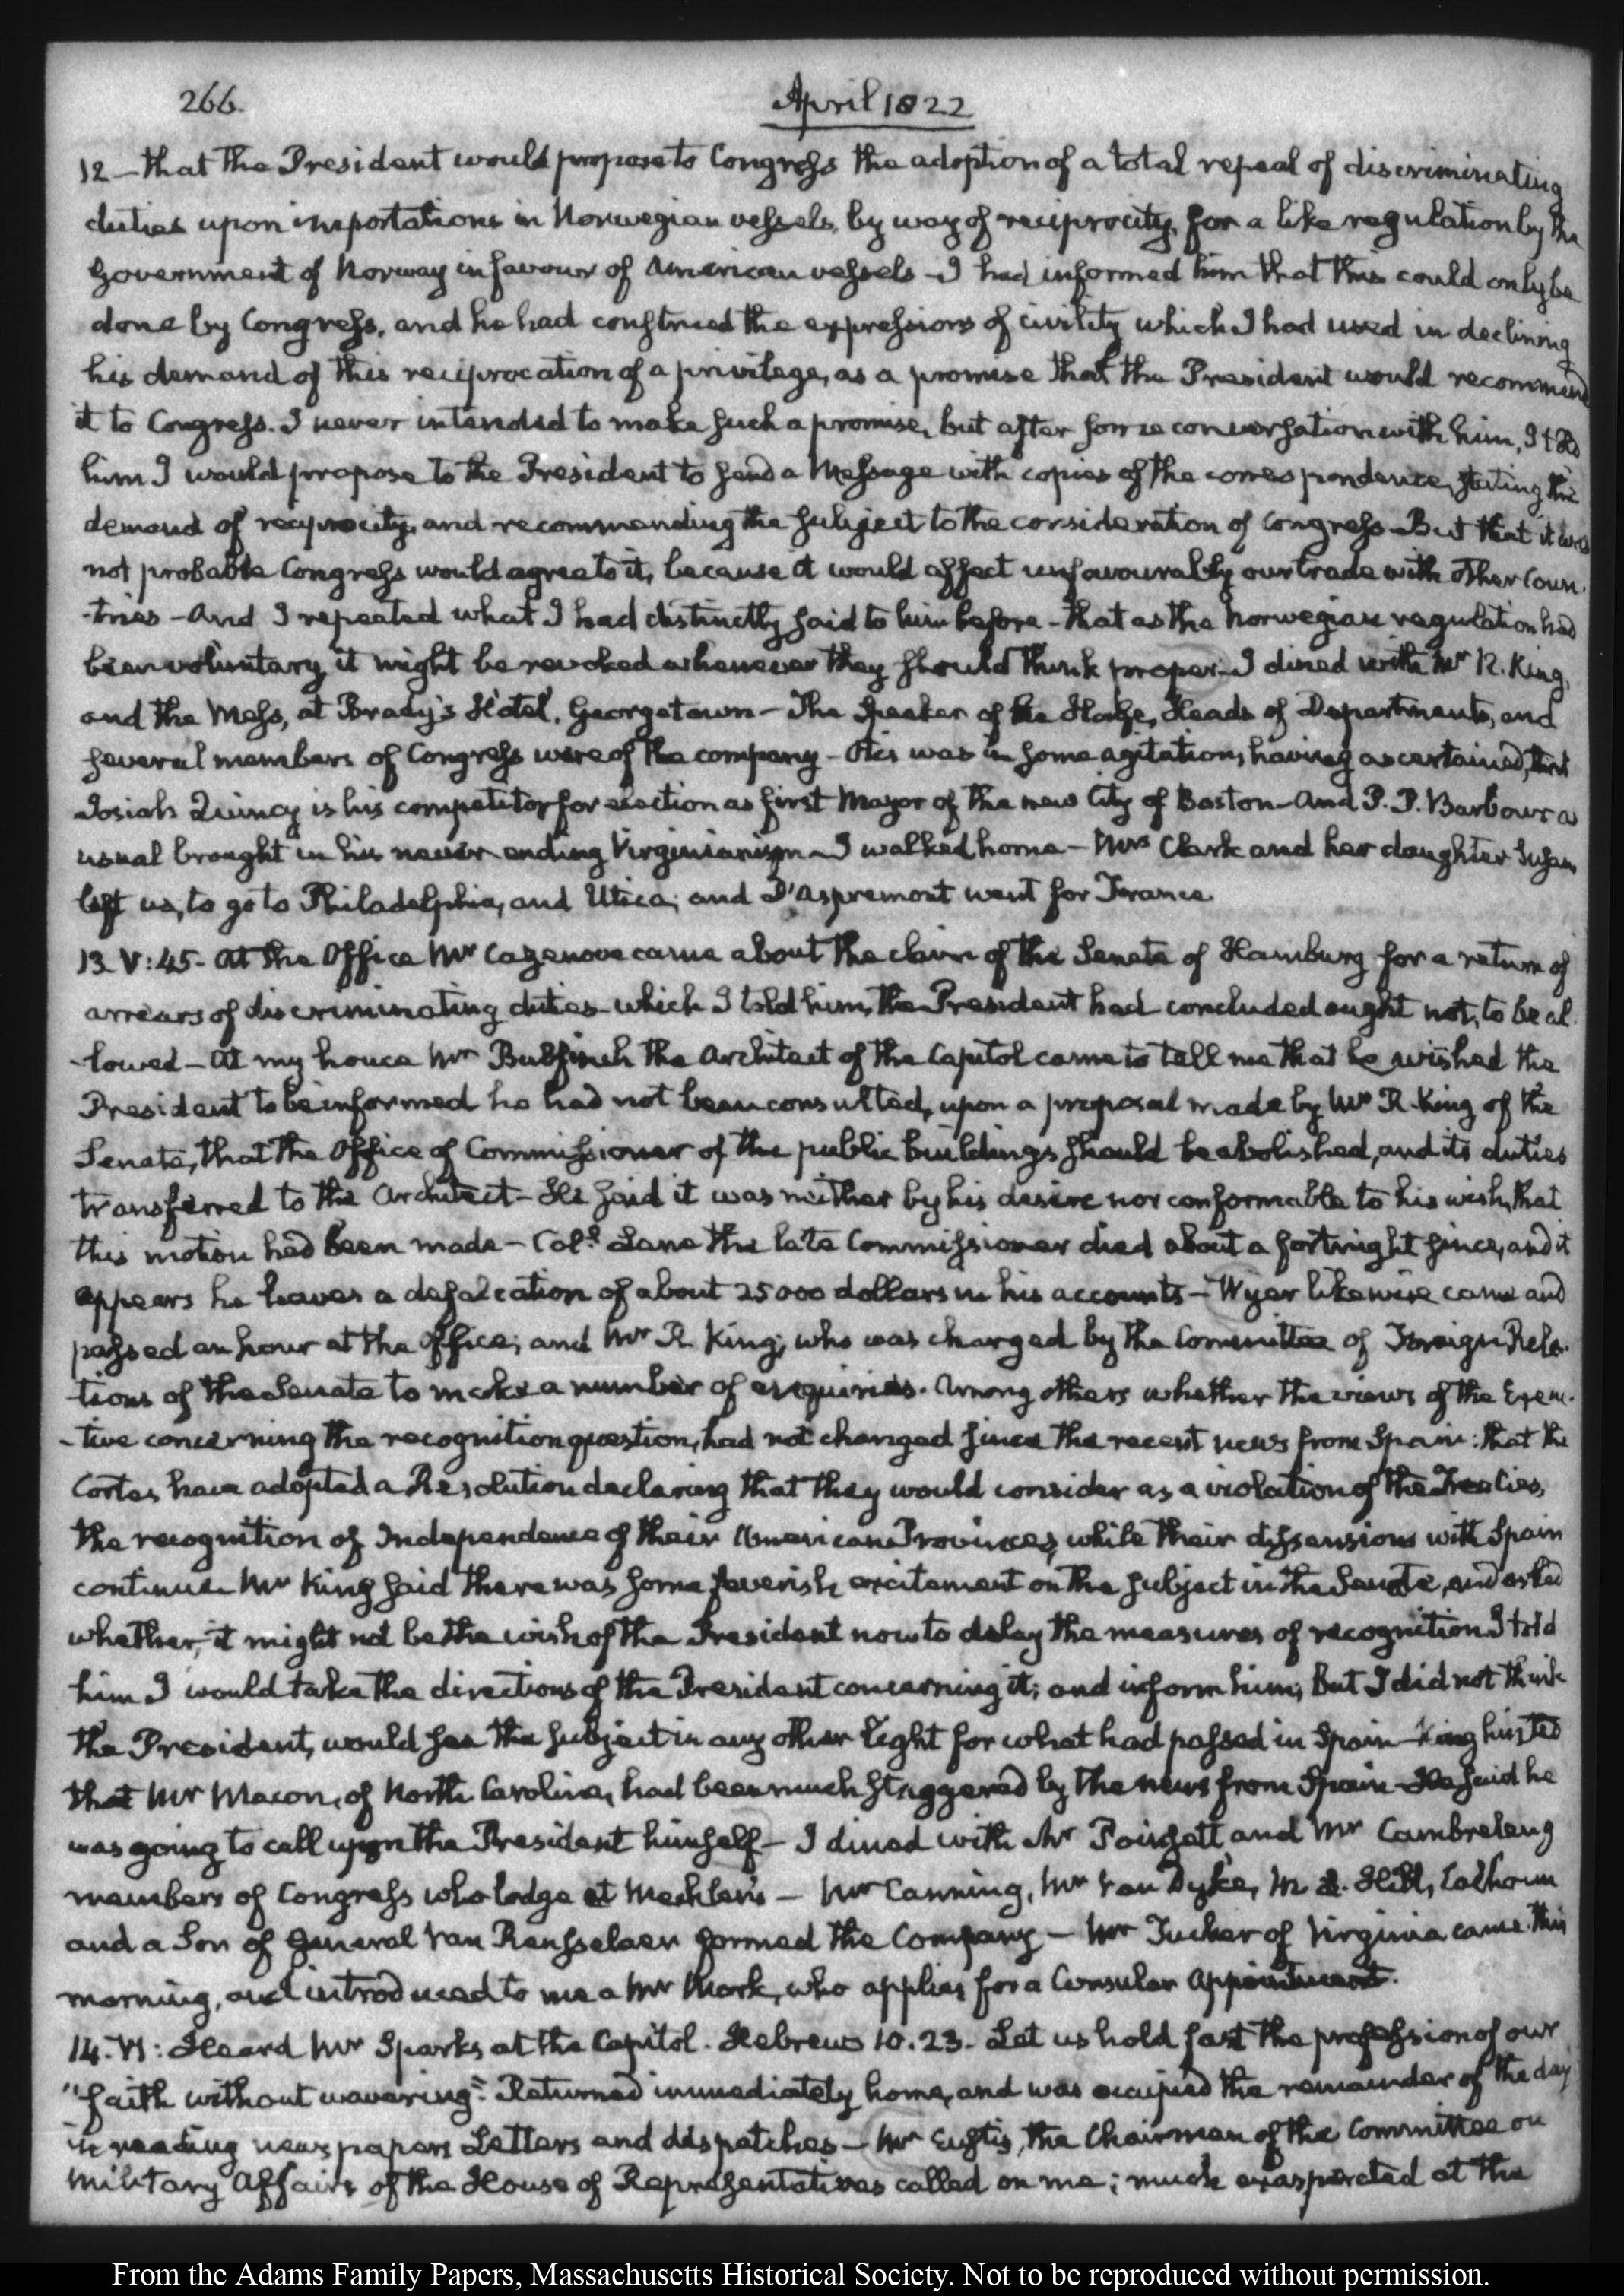 266.
April 1822
12 – that the President would propose to Congress the adoption of a total repeal of discriminating
duties upon importations in Norwegian vessels, by way of reciprocity, for a like regulation by the
Government of Norway in favour of American vessels – I had informed him that this could only be
done by Congress, and he had construed the expressions of civility which I had used in declining
his demand of this reciprocation of a privilege, as a promise that the President would recommend
it to Congress. I never intended to make such a promise, but after some conversation with him, I told
him I would propose to the President to send a Message with copies of the correspondence, stating the
demand of reciprocity, and recommending the subject to the consideration of Congress – But that it was
not probable Congress would agree to it, because it would affect unfavourably our trade with other Coun-
-tries – And I repeated what I had distinctly said to him before – that as the Norwegian regulation had
been voluntary, it might be revoked whenever they should think proper – I dined with Mr R. King,
and the Mess, at Brady's Hotel, Georgetown – The Speaker of the House, Heads of Departments, and
several members of Congress were of the company – Otis was in some agitation, having ascertained, that
Josiah Quincy is his competitor for election as first Mayor of the new City of Boston – And P. P. Barbour as
usual brought in his never ending Virginianism – I walked home – Mrs Clark and her daughter Susan
left us, to go to Philadelphia, and Utica; and D'Aspremont went for France.
13. V: 45. At the Office Mr Cazenove came about the claim of the Senate of Hamburg for a return of
arrears of discriminating duties – which I told him, the President had concluded ought not, to be al-
-lowed – At my house Mr Bulfinch the Architect of the Capitol came to tell me that he wished the
President to be informed he had not been consulted, upon a proposal made by Mr R. King of the
Senate, that the Office of Commissioner of the public buildings should be abolished, and its duties
transferred to the Architect – He said it was neither by his desire nor conformable to his wish, that
this motion had been made – Coll Lane the late Commissioner died about a fortnight since, and it
appears he leaves a defalcation of about 25000 dollars in his accounts – Wyer likewise came and
passed an hour at the Office; and Mr R. King, who was charged by the Committee of Foreign Rela-
tions of the Senate to make a number of enquiries. Among others whether the views of the Execu-
-tive concerning the recognition question, had not changed since the recent news from Spain: that the
Cortes have adopted a Resolution declaring that they would consider as a violation of the Treaties,
the recognition of Independence of their American Provinces, while their dissensions with Spain
continue. Mr King said there was some feverish excitement on the subject in the Senate, and asked
whether, it might not be the wish of the President now to delay the measures of recognition. I told
him I would take the directions of the President concerning it; and inform him; But I did not think
the President, would see the subject in any other light for what had passed in Spain – King hinted
that Mr Macon, of North Carolina, had been much staggered by the news from Spain – He said he
was going to call upon the President himself – I dined with Mr Poinsett and Mr Cambreleng
members of Congress who lodge at Mechlen's – Mr Canning, Mr Van Dyke, M. Hill, Calhoun
and a Son of General Van Rensselaer formed the Company – Mr Tucker of Virginia came this
morning, and introduced to me a Mr Mork, who applies for a Consular Appointment.
14. VI: Heard Mr Sparks at the Capitol. Hebrews 10. 23. Let us hold fast the profession of our
"faith without wavering." Returned immediately home, and was occupied the remainder of the day
in reading newspapers Letters and dispatches – Mr Eustis, the Chairman of the Committee on
Military Affairs of the House of Representatives called on me; much exasperated at the
From the Adams Family Papers, Massachusetts Historical Society. Not to be reproduced without permission.